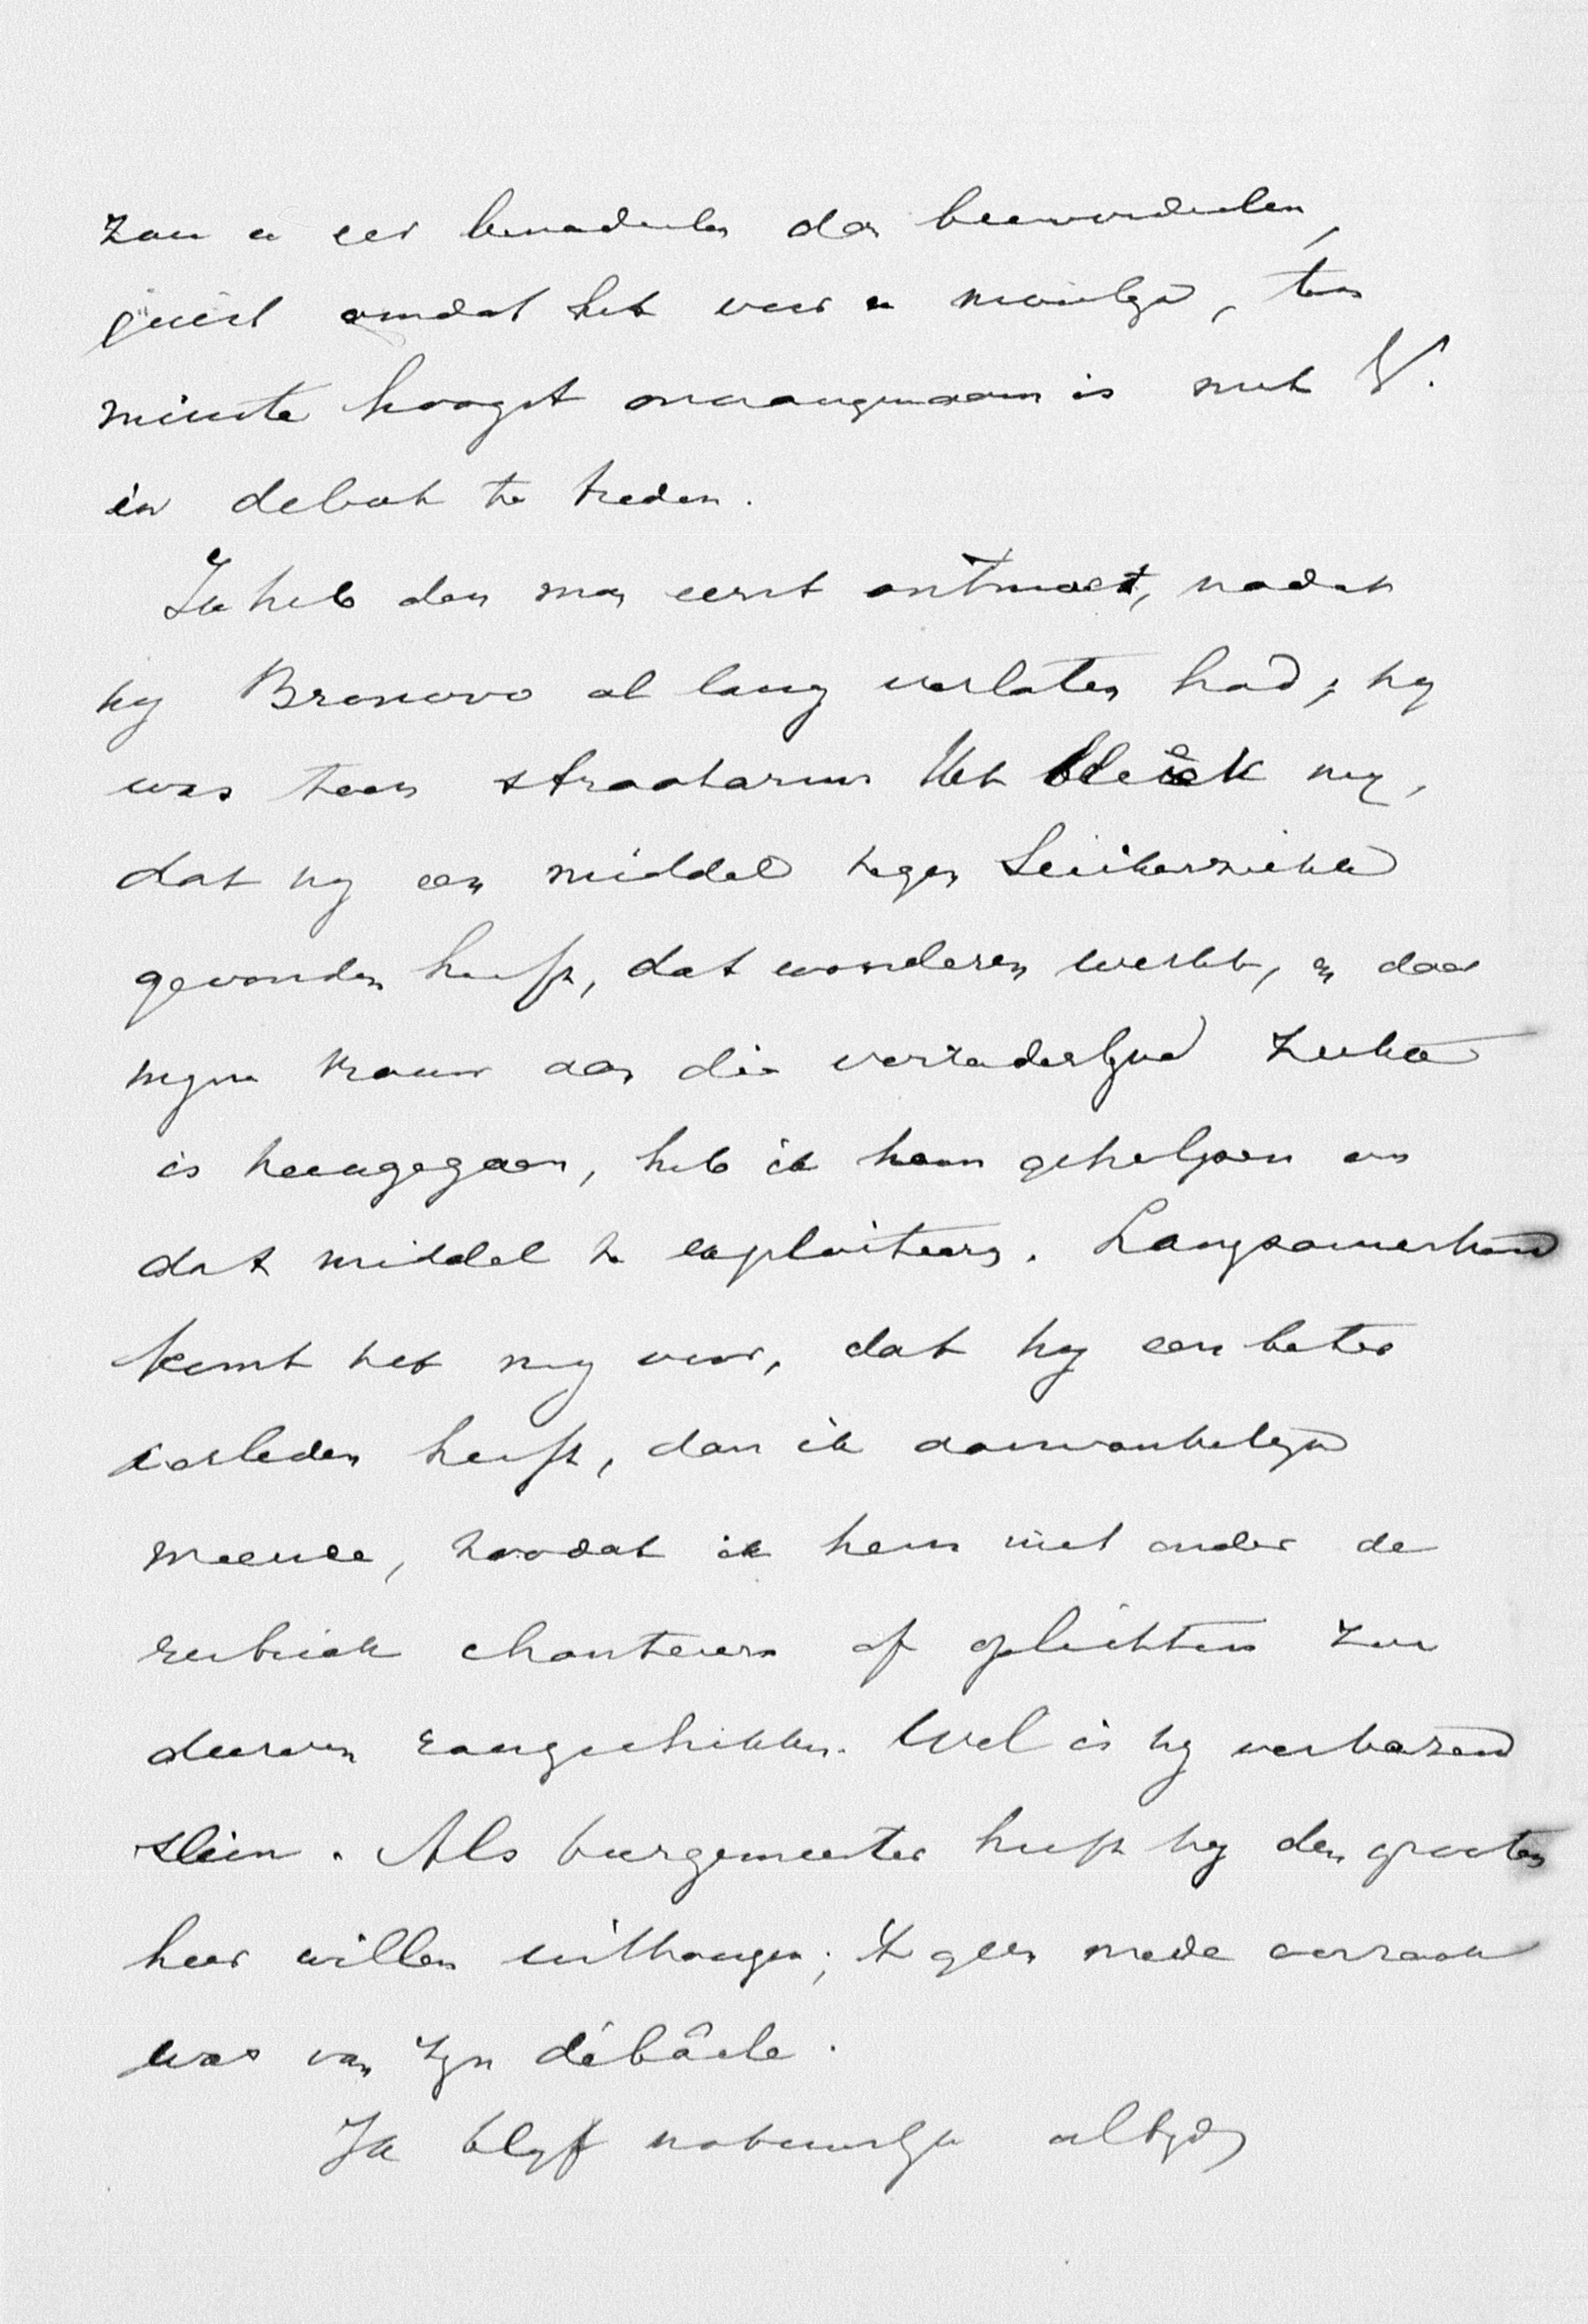 zou u eer benadeelen dan bevoordeelen,
juist omdat het voor u moeilijk, ten
minste hoogst onaangenaam is met V.
in debat te treden.
Ik heb den man eerst ontmoet, nadat
hij Bronovo al lang verlaten had; hij
was toen straatarm. Het bleek mij,
dat hij een middel tegen Suikerziekte
gevonden heeft, dat wonderen werkt, en daar
mijne vrouw aan die verraderlijke ziekte
is heengegaan, heb ik hem geholpen om
dat middel te exploiteeren. Langzamerhand
komt het mij voor, dat hij een beter
verleden heeft, dan ik aanvankelijk
meende, zoodat ik hem niet onder de
rubriek chanteurs of oplichters zou
durven rangschikken. Wel is hij verbazend
slim. Als burgemeester heeft hij den grooten
heer willen uithangen; 't geen mede oorzaak
was van zijn débâcle.
Ik blijf natuurlijk altijd